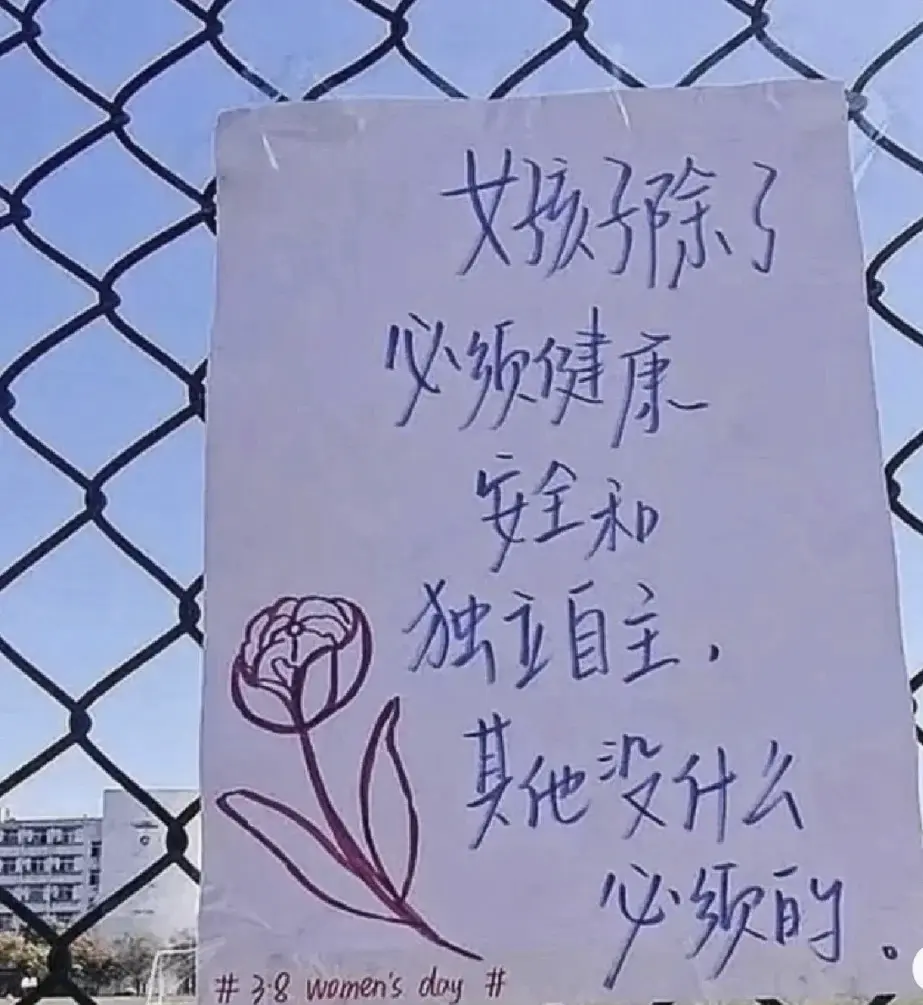 女孩子除了
必须健康
安全和
独立自主，
其他没什么
必须的。
# 3·8 women's day #